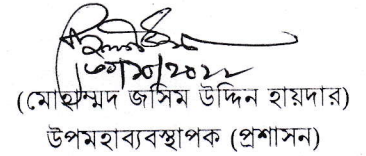 ৩০/১০/২০২২
(মোহাম্মদ জসিম উদ্দিন হায়দার)
উপমহাব্যবস্থাপক (প্রশাসন)